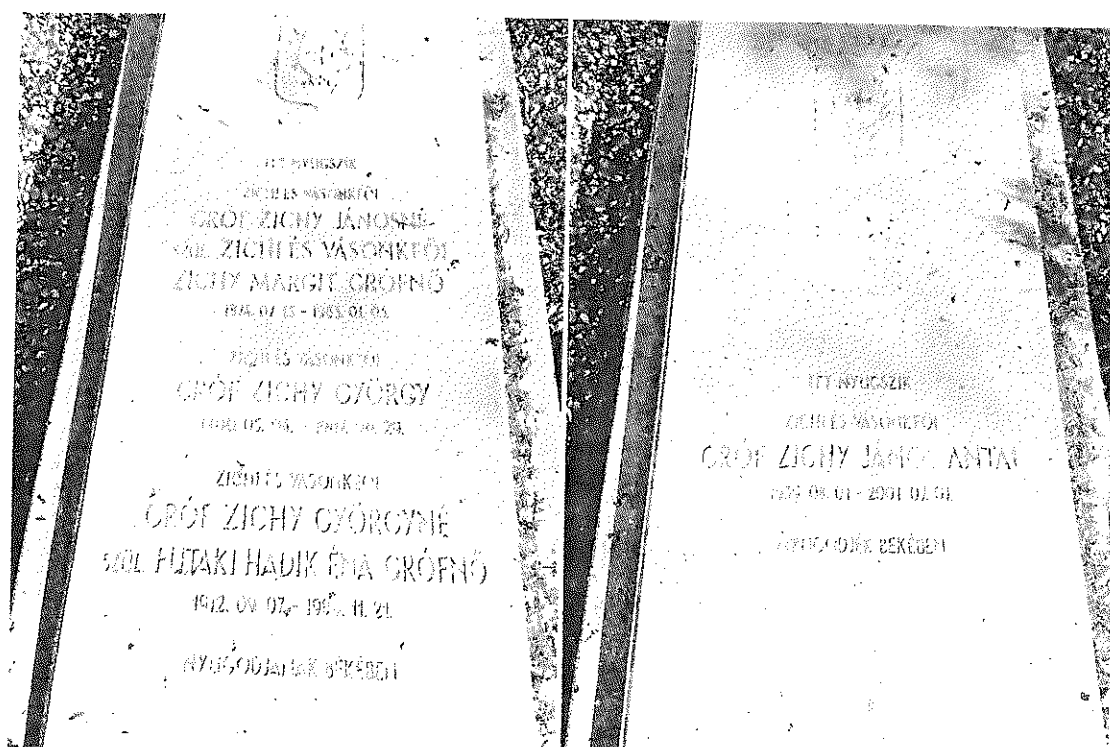 ITT NYUGSZIK
ZICHI ÉS VÁSONKEŐI
GRÓF ZICHY JÁNOSNÉ
SZÜL. ZICHI ÉS VÁSONKEŐI
ZICHY MARGIT GRÓFNŐ
ZICHI ÉS VÁSONKEŐI
GRÓF ZICHY GYÖRGY
ZICHI ÉS VÁSONKEŐI
GRÓF ZICHY GYÖRGYNÉ
SZÜL. FUTAKI HADIK ÉVA GRÓFNŐ
1912. 09. 07. - 11. 21.
NYUGODJANAK BÉKÉBEN
ITT NYUGSZIK
ZICHI ÉS VÁSONKEŐI
GRÓF ZICHY JÁNOS ANTAL
NYUGODJÉK BÉKÉBEN